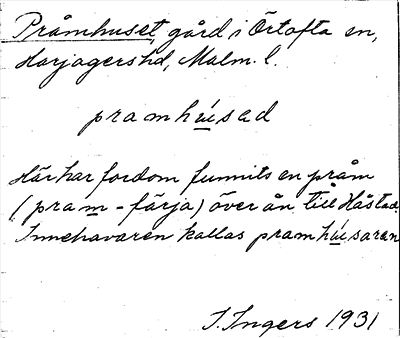 Pråmhuset, gård i Örtofta sn,
Harjagers hd, Malm. l.
pramhúsad
Här har fordom funnits en pråm
(pram - färja) över ån till Håstad.
Innehavaren kallas pramhúsaran
I. Ingers 1931